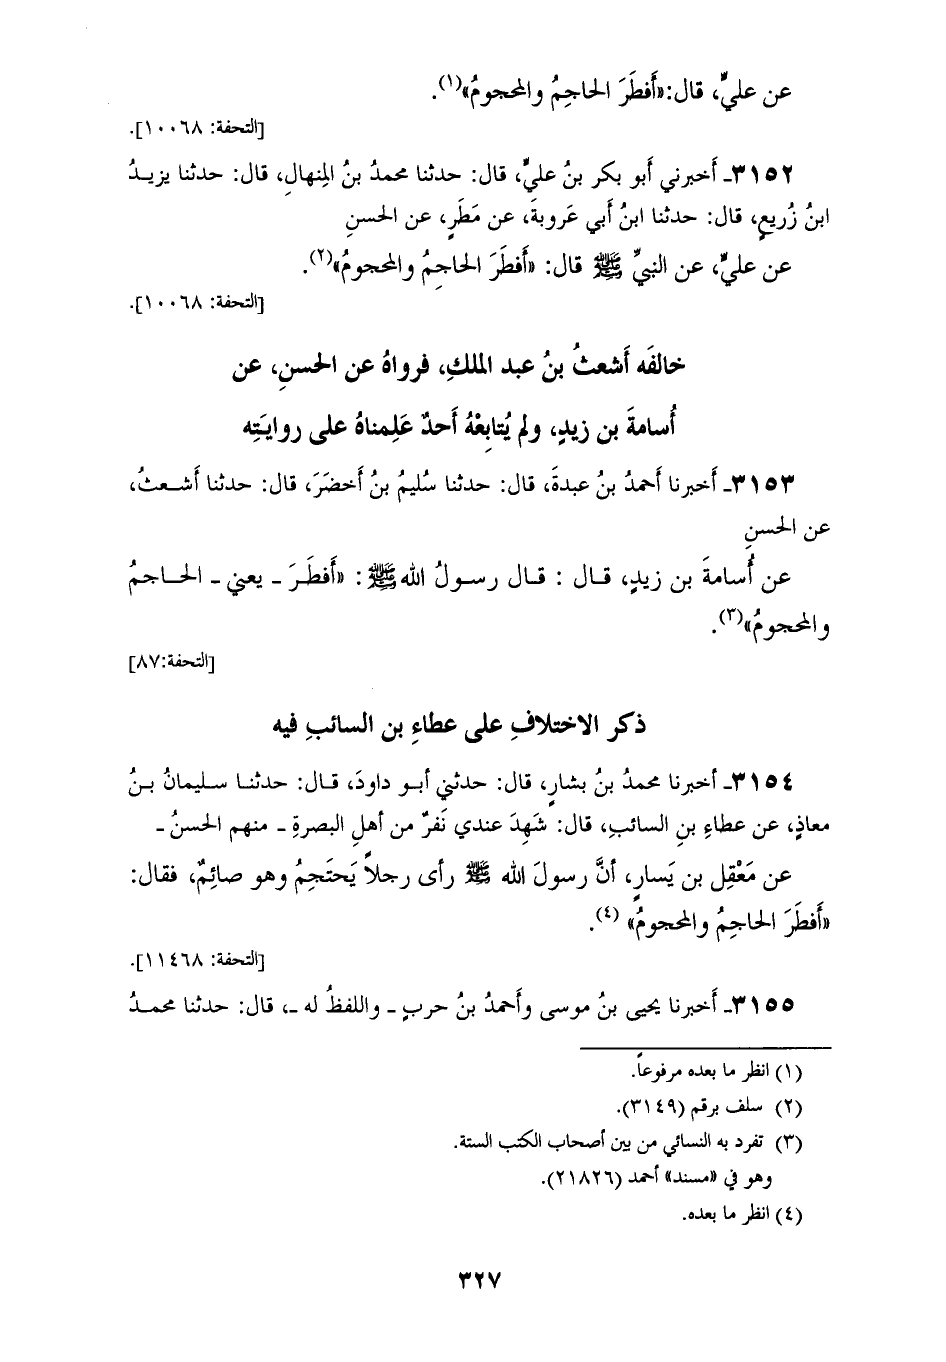 عن عليٍّ، قال:«أَفطَرَ الحاجِمُ والمحجومُ»(١).
[التحفة: ١٠٠٦٨].
٣١٥٢ـ أَخبرني أَبو بكر بنُ عليٍّ، قال: حدثنا محمدُ بنُ المِنهالِ، قال: حدثنا يزيـدُ
ابنُ زُريعٍ، قال: حدثنا ابنُ أَبي عَروبةَ، عن مَطَرٍ، عن الحسنِ
عن عليٍّ، عن النبيِّ ﷺ قال: «أَفطَرَ الحاجِمُ والمحجومُ»(٢).
[التحفة: ١٠٠٦٨].
خالفَه أَشعثُ بنُ عبد الملكِ، فرواهُ عن الحسنِ، عن
أُسامةَ بن زيدٍ، ولم يُتابِعْهُ أَحدٌ عَلِمناهُ على روايَتِه
٣١٥٣ـ أَخبرنا أَحمدُ بنُ عبدةَ، قال: حدثنا سُليمُ بنُ أَخضَرَ، قال: حدثنا أَشـعثُ،
عن الحسنِ
عن أُسامةَ بن زيدٍ، قـال : قـال رسـولُ الله ﷺ : «أَفطَـرَ ـ يعني ـ الحـاجمُ
والمحجومُ»(٣).
[التحفة:٨٧]
ذكر الاختلافِ على عطاءِ بن السائبِ فيه
٣١٥٤ـ أَخبرنا محمدُ بنُ بشارٍ، قال: حدثني أَبـو داودَ، قـال: حدثنـا سـليمانُ بـنُ
معاذٍ، عن عطاءِ بنِ السائبِ، قال: شَهِدَ عندي نَفرٌ من أهلِ البصرةِ ـ منهم الحسنُ ـ
عن مَعْقِل بن يَسارٍ، أنَّ رسولَ الله ﷺ رأى رجلاً يَحتَجِمُ وهو صائِمٌ، فقال:
«أَفطَرَ الحاجِمُ والمحجومُ» (٤).
[التحفة: ١١٤٦٨].
٣١٥٥ـ أَخبرنا يحيى بنُ موسى وأَحمدُ بنُ حربٍ ـ واللفظُ له ـ، قال: حدثنا محمـدُ
(١) انظر ما بعده مرفوعاً.
(٢) سلف برقم (٣١٤٩).
(٣) تفرد به النسائي من بين أصحاب الكتب الستة.
وهو في «مسند» أحمد (٢١٨٢٦).
(٤) انظر ما بعده.
٣٢٧